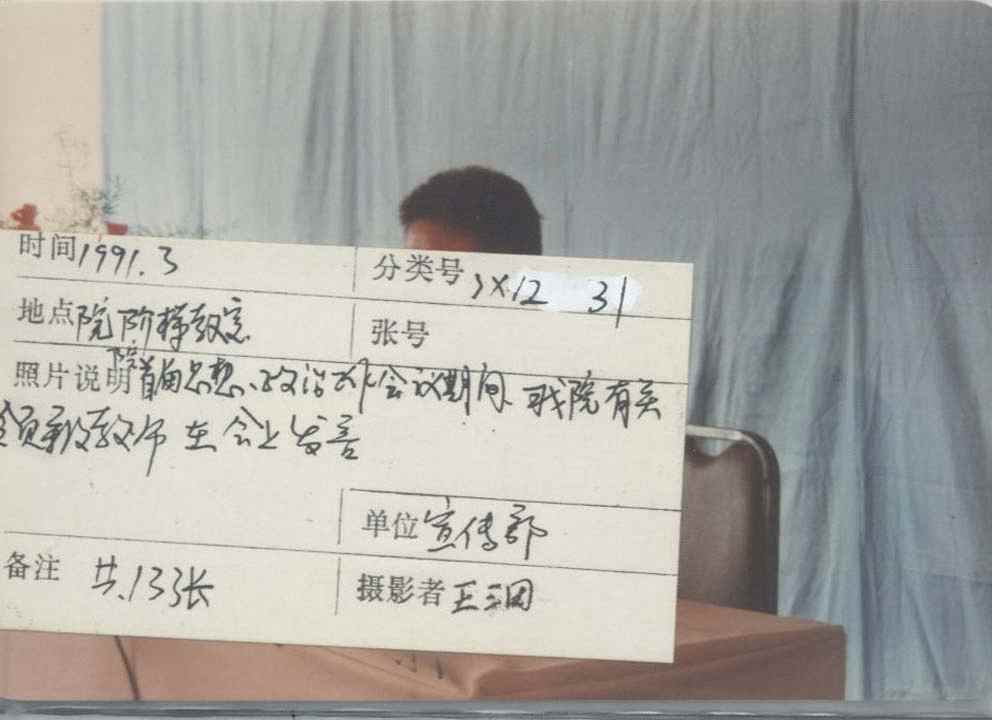 时间1991.3
分类号 JX12 31
地点院阶梯教室
张号
院
照片说明首届思想政治工作会议期间、我院有关
领导及教师在会上发言
单位宣传部
备注 共13张
摄影者王三因